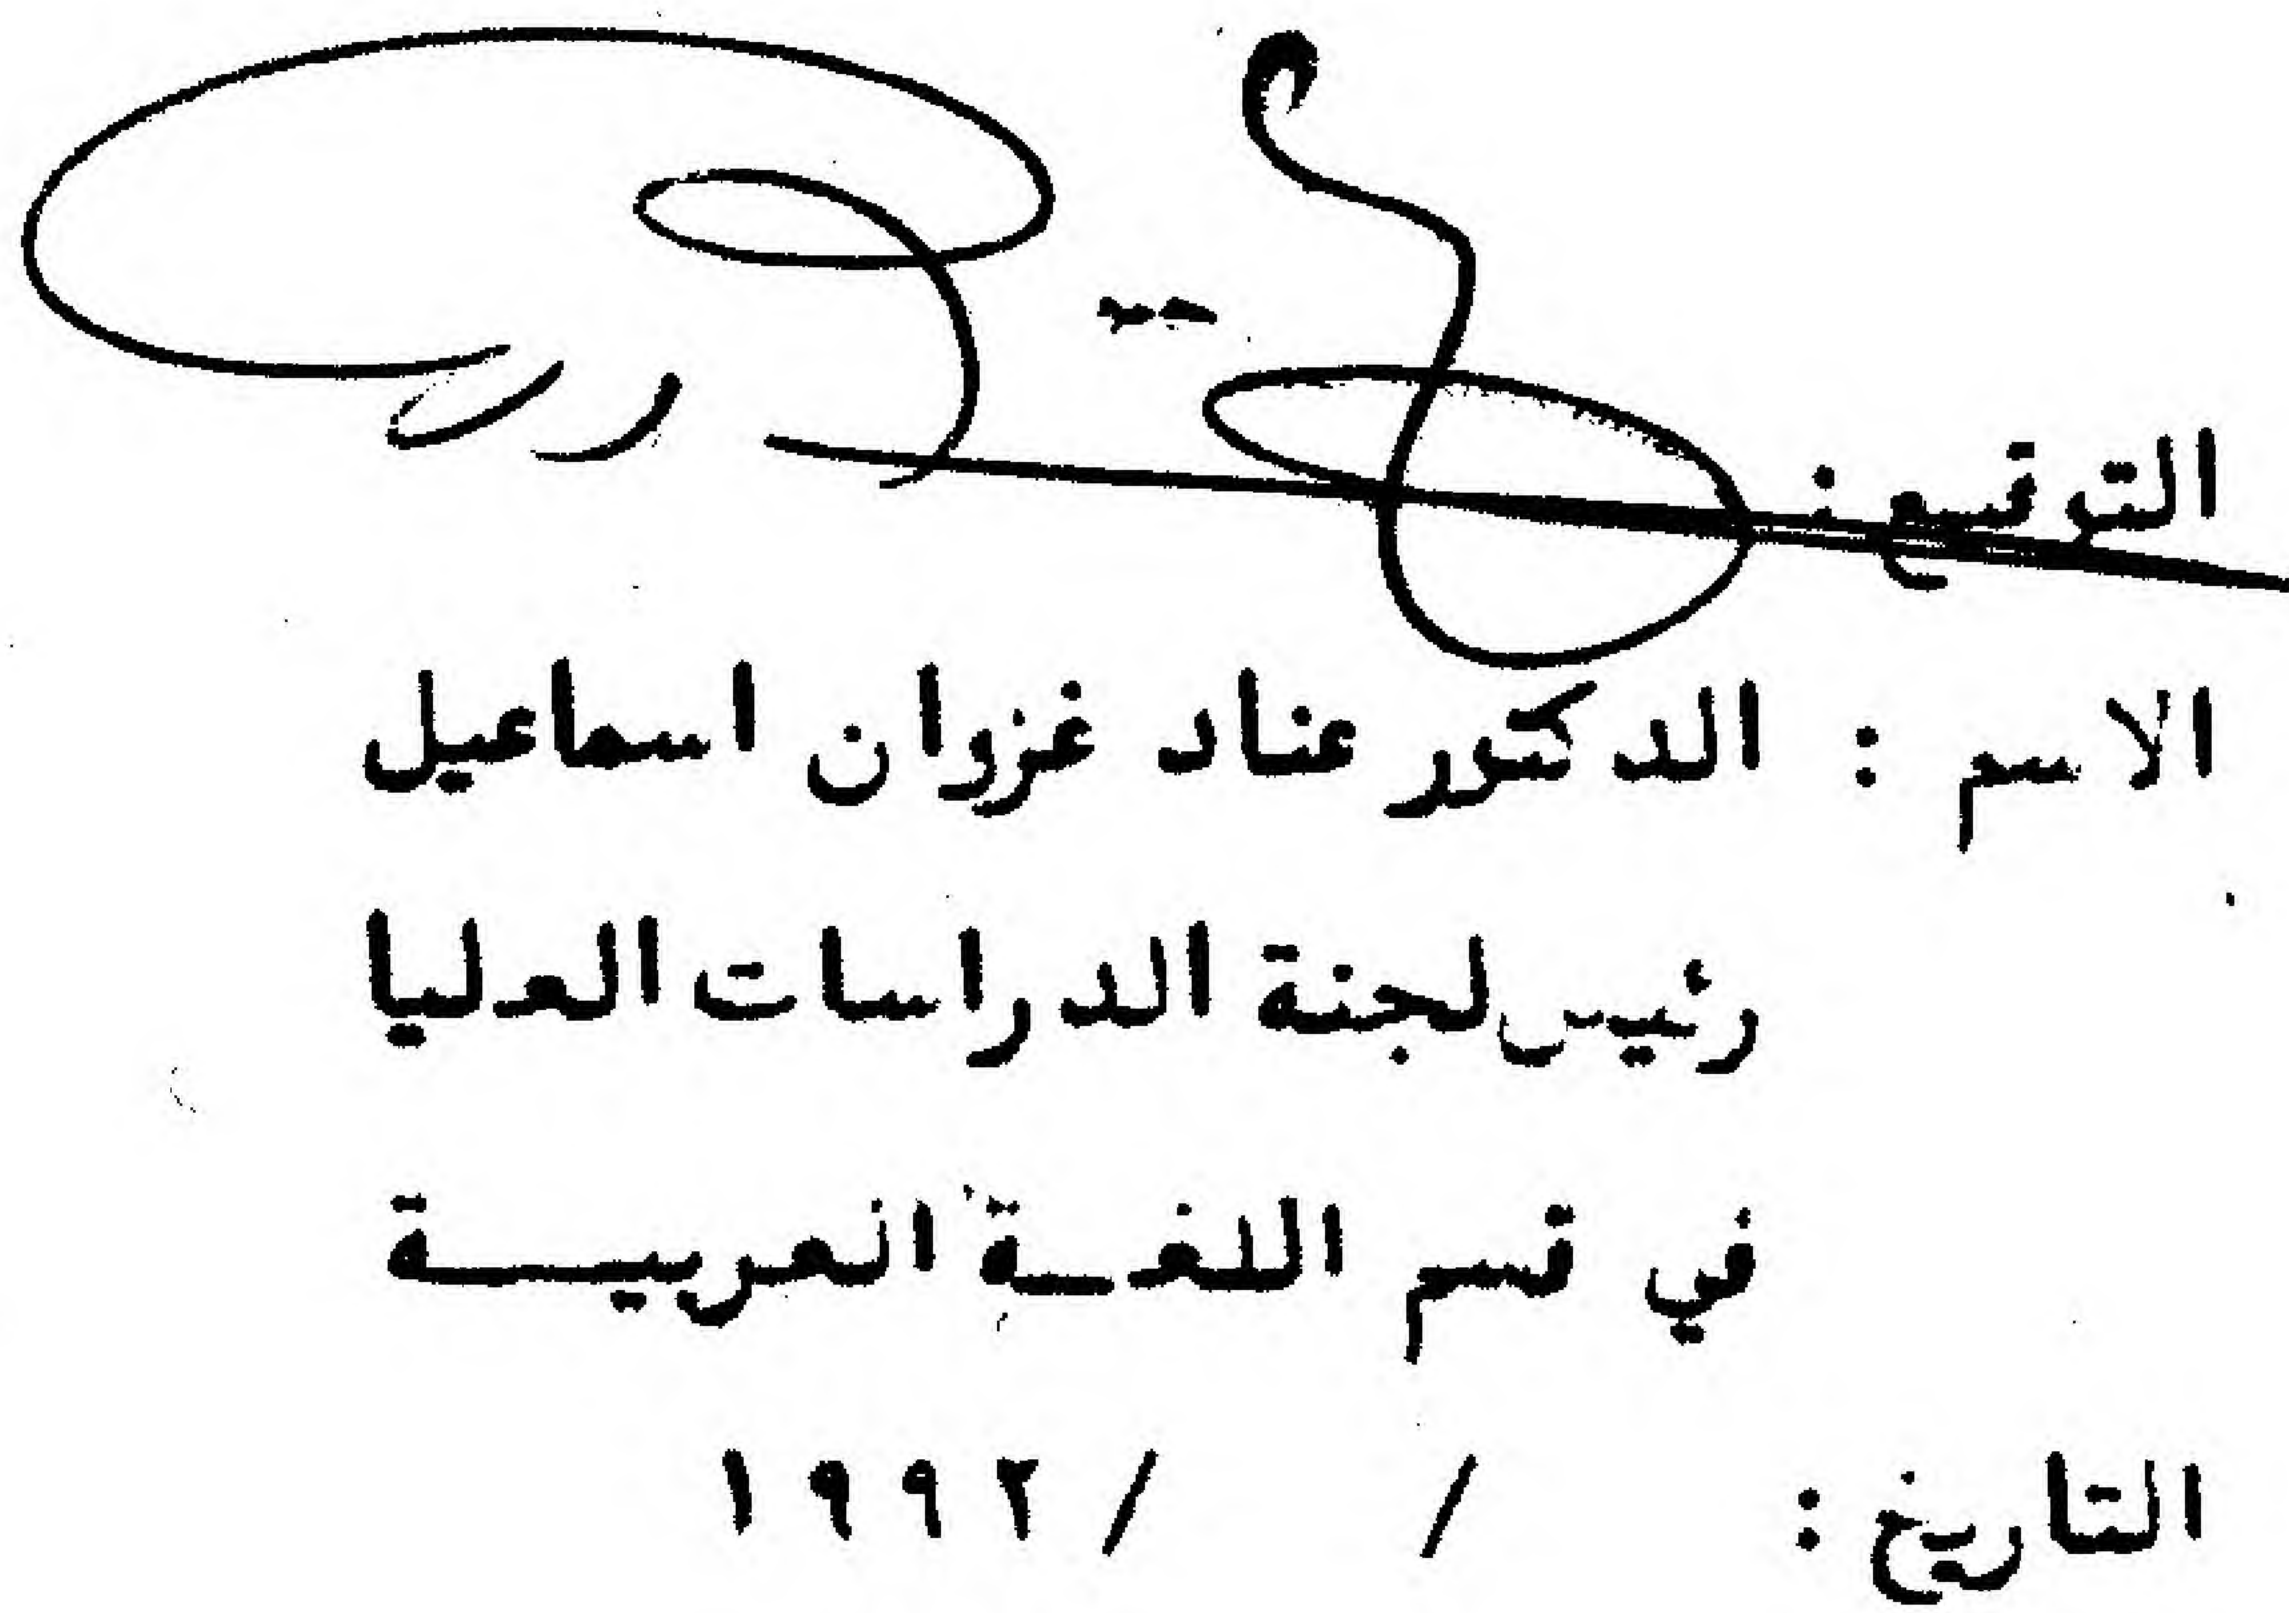 التوقيع :
الاسم : الدكتور عناد غزوان اسماعيل
رئيس لجنة الدراسات العليا
في قسم اللغـة العربيـــة
التاريخ : / / ١٩٩٢